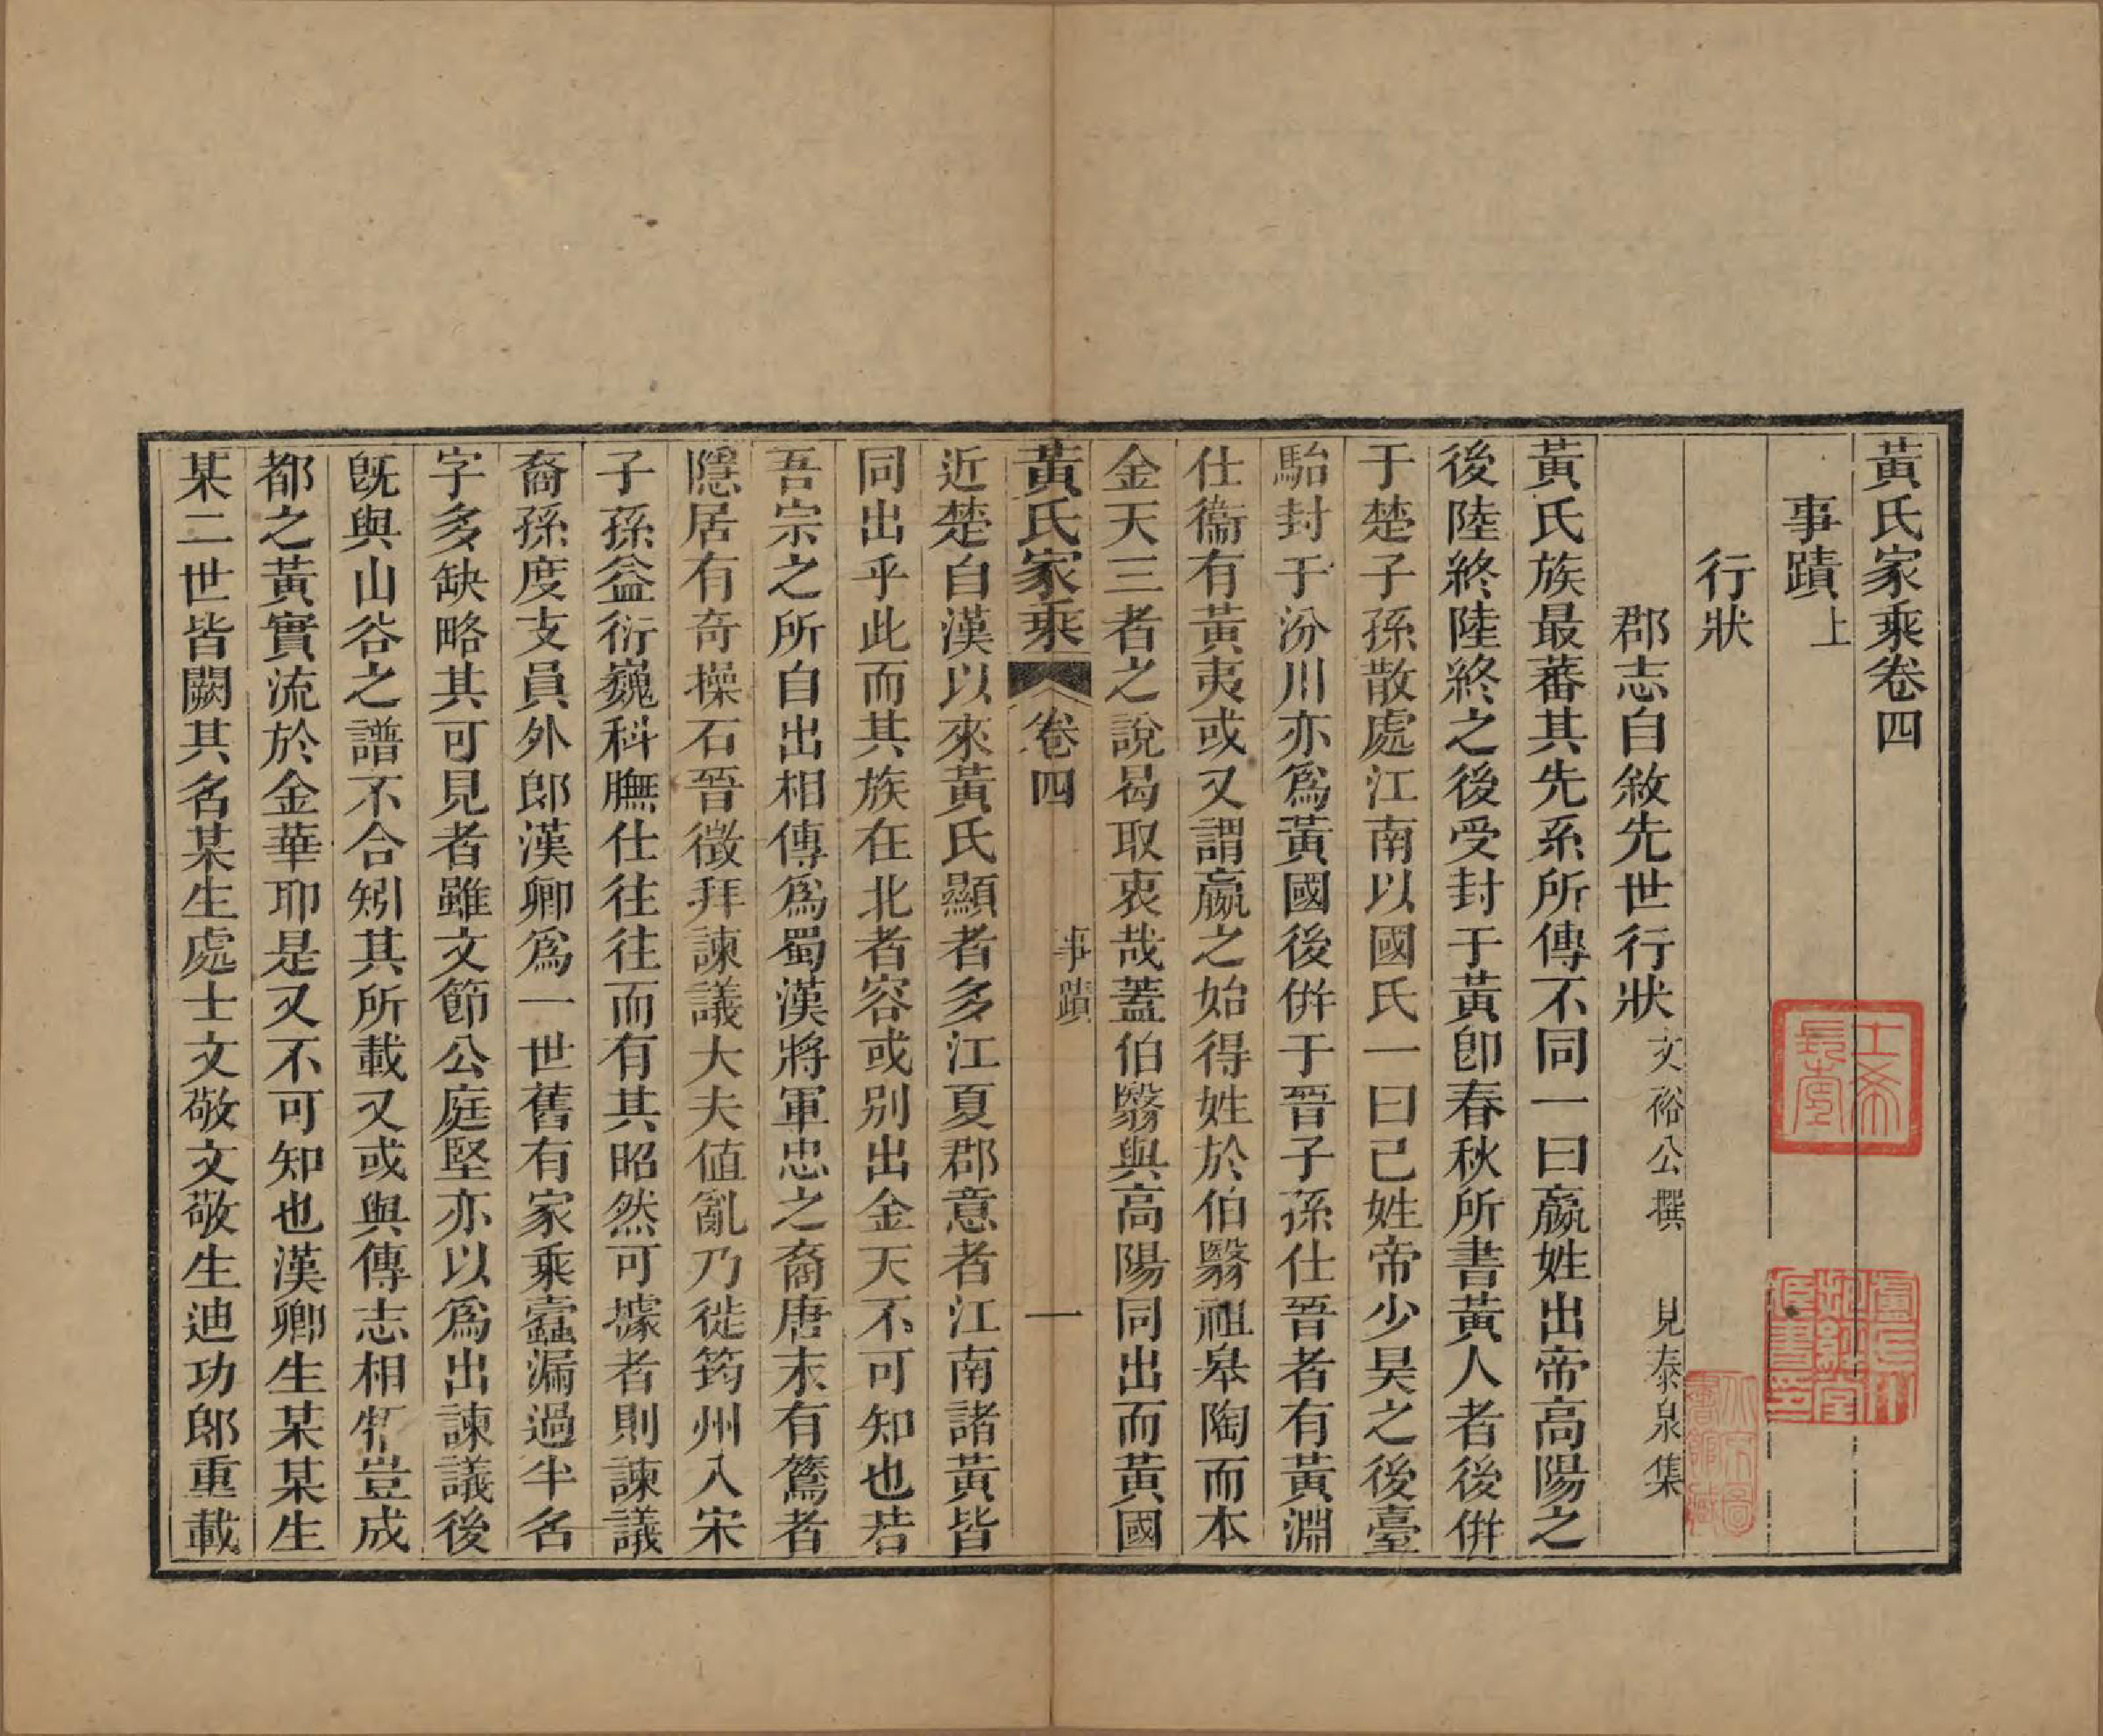 黃氏家乘卷四
事蹟上
行狀
郡志自敘先世行狀文裕公撰 見泰泉集
黃氏族最蕃其先系所傳不同一曰嬴姓出帝高陽之
後陸終陸終之後受封于黃卽春秋所書黃人者後併
于楚子孫散處江南以國氏一曰己姓帝少昊之後臺
駘封于汾川亦爲黃國後併于晉子孫仕晉者有黃淵
仕衞有黃夷或又謂嬴之始得姓於伯翳祖皋陶而本
金天三者之說曷取衷哉蓋伯翳與高陽同出而黃國
黃氏家乘 卷四 事蹟 一
近楚自漢以來黃氏顯者多江夏郡意者江南諸黃皆
同出乎此而其族在北者容或別出金天不可知也若
吾宗之所自出相傳爲蜀漢將軍忠之裔唐末有鷟者
隱居有奇操石晉徵拜諫議大夫値亂乃徙筠州入宋
子孫益衍巍科膴仕往往而有其昭然可據者則諫議
裔孫度支員外郎漢卿爲一世舊有家乘蠹漏過半名
字多缺略其可見者雖文節公庭堅亦以爲出諫議後
旣與山谷之譜不合矧其所載又或與傳志相牾豈成
都之黃實流於金華耶是又不可知也漢卿生某某生
某二世皆闕其名某生處士文敬文敬生迪功郎重載